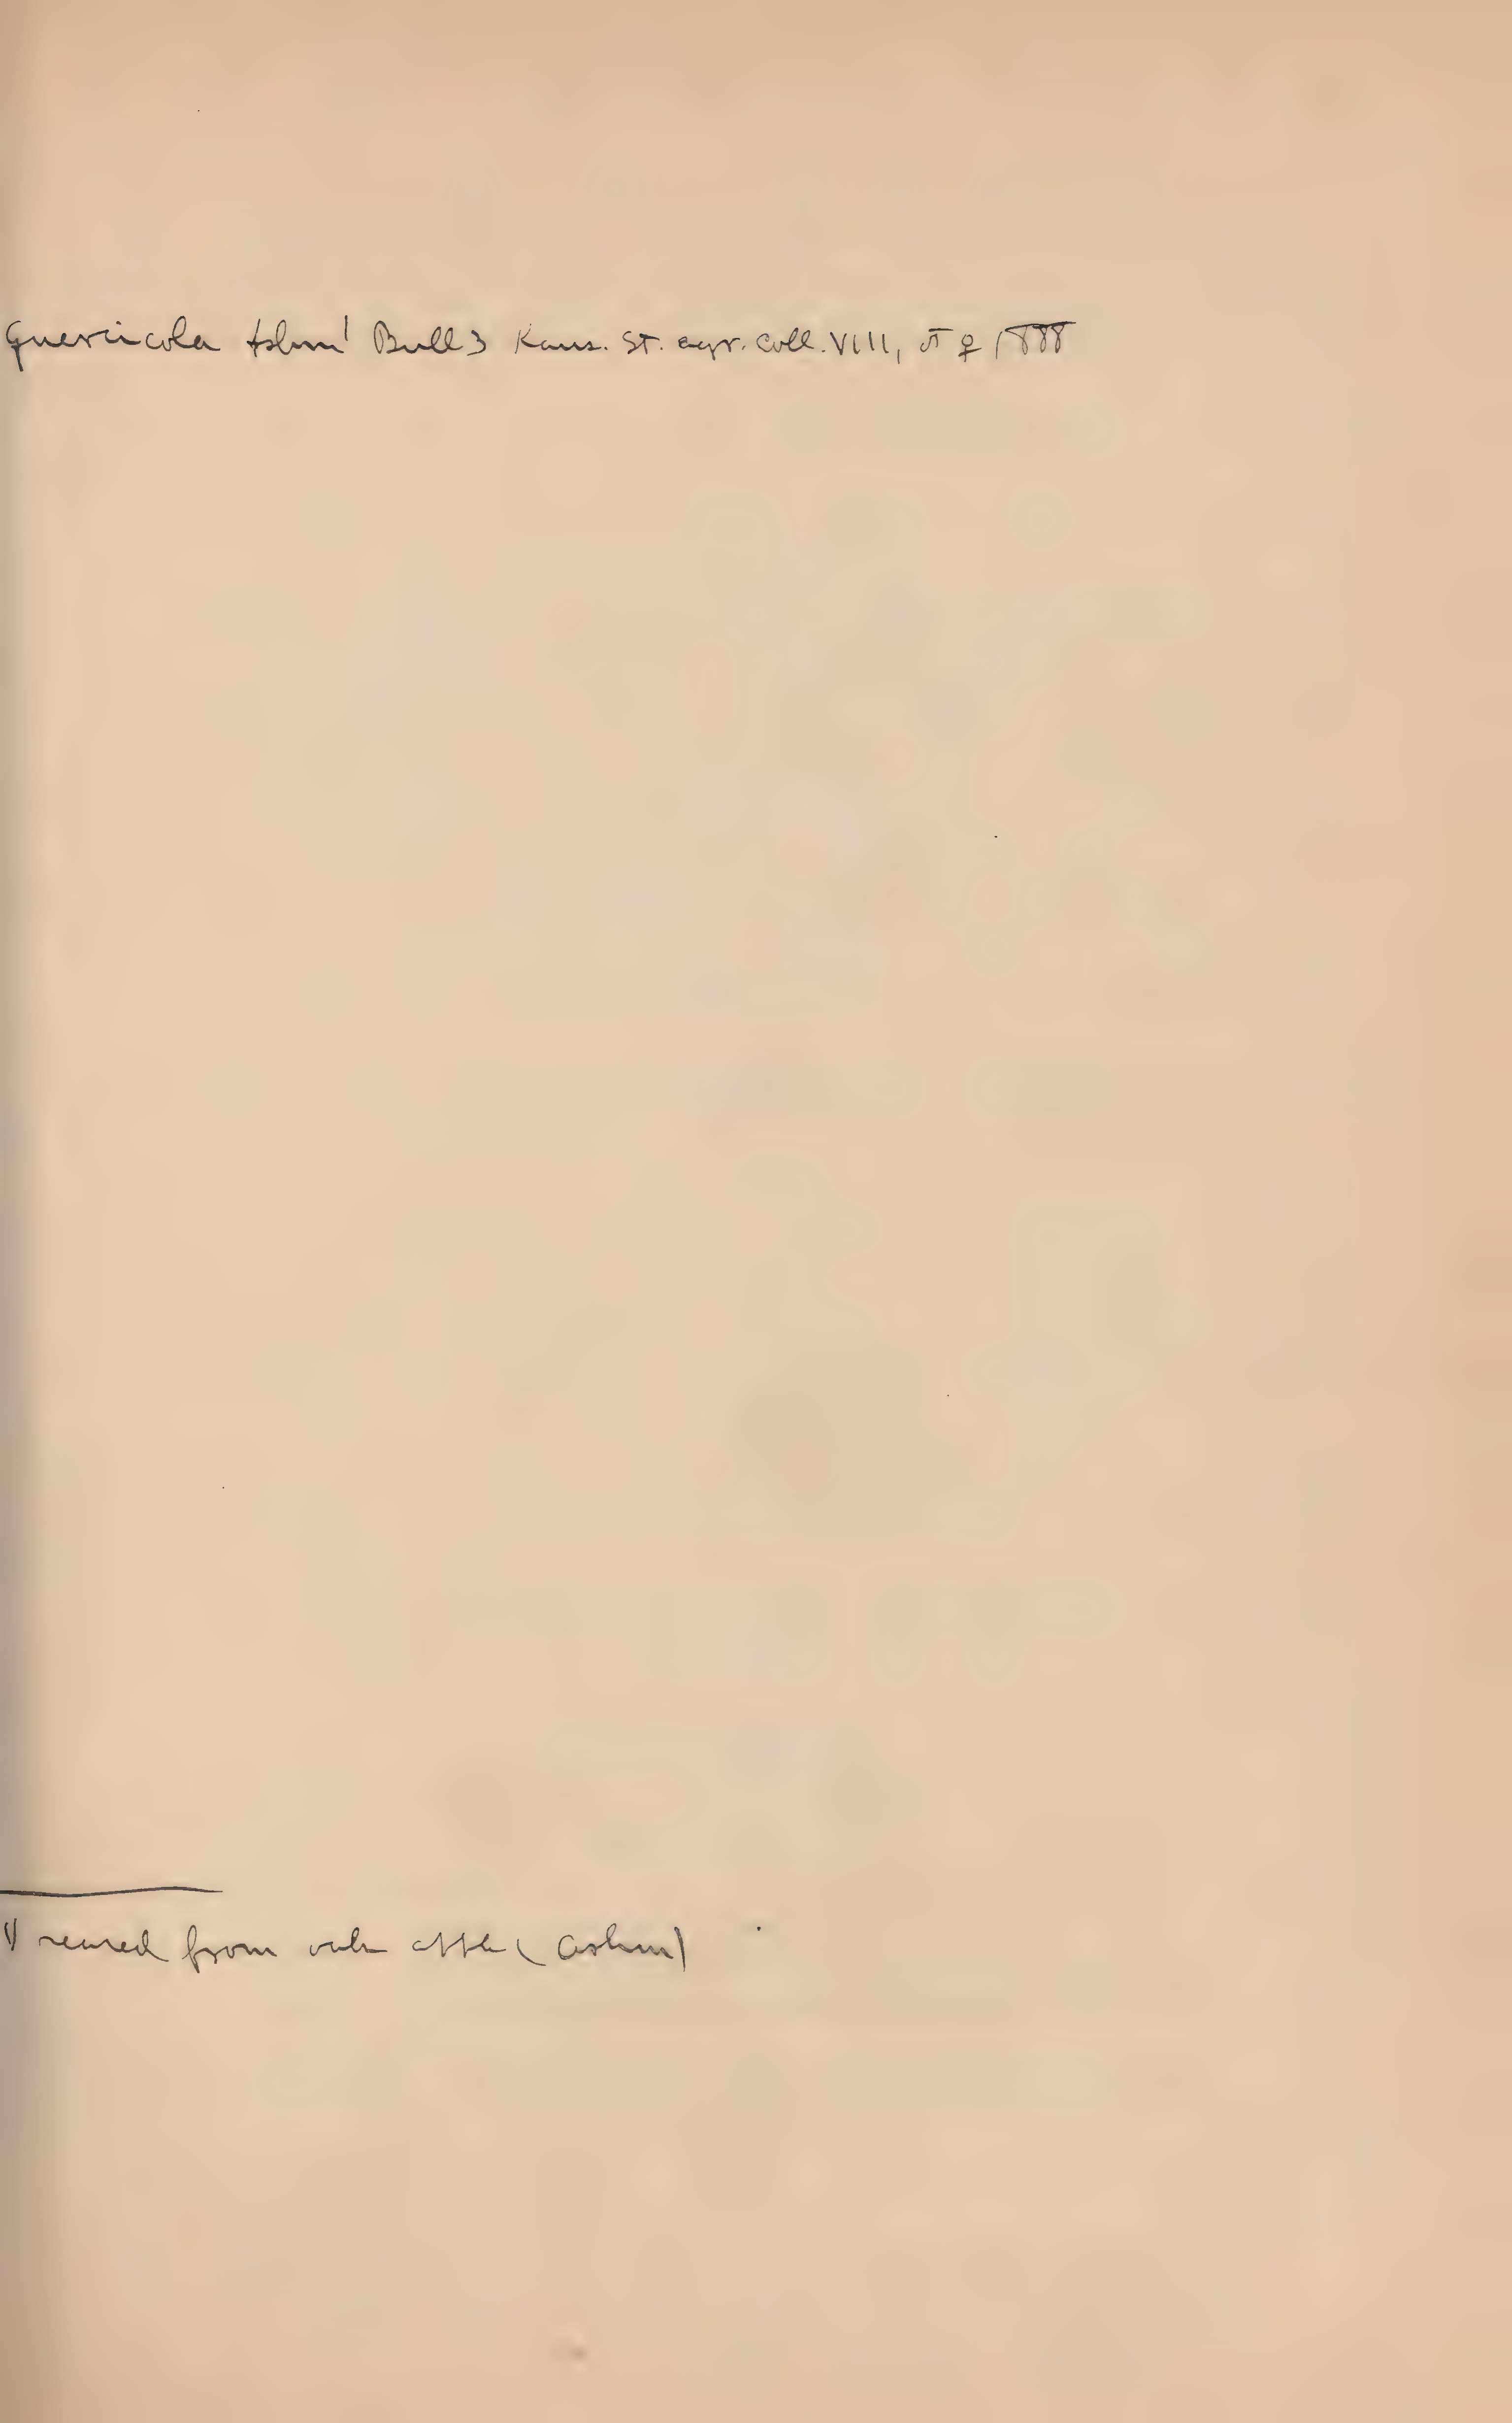 quercicola Ashm! Bull 3 Kans. St. agr. Coll. VIII, ♂ ♀ 1888
1) reared from oak apple (Ashm)